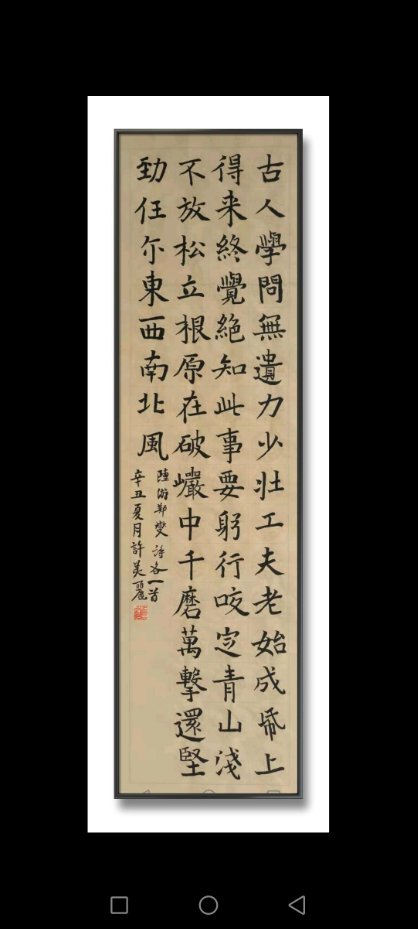 古人學問無遺力少壮工夫老始成帋上
得来終覺絕知此事要躬行咬定青山淺
不放松立根原在破巖中千磨萬擊還堅
勁任尓東西南北風
陸游鄭燮詩各一首
辛丑夏月許美麗